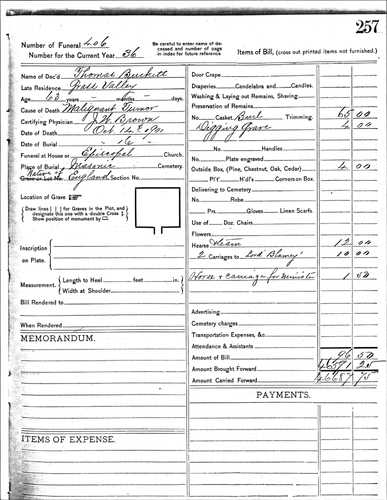 257
Number of Funeral 406
Number for the Current Year 36
Be careful to enter name of deceased and number of page in index for future reference
Items of Bill, (cross out printed items not furnished.)
Name of Dec'd Thomas Buckett
Late Residence Grass Valley
Age 63 years 5 — days
Cause of Death Malignant Tumor
Certifying Physician J. W. Brown
Date of Death Oct 14th 1901
Date of Burial " 16 "
Funeral at House or Episcopal Church.
Place of Burial, Masonic Cemetery.
Native of
Grave or Lot No. England Section No.
Location of Grave
Draw lines for Graves in the Plot, and
designate this one with a double Cross
Show position of monument by
Inscription
on Plate.
Measurement.
Length to Heel feet in.
Width at Shoulder
Bill Rendered to
When Rendered
MEMORANDUM.
ITEMS OF EXPENSE.
Door Crape
Draperies Candelabra and Candles.
Washing & Laying out Remains, Shaving
Preservation of Remains
No. Casket, Burl Trimming. 65 00
Digging Grave 4 00
No. Handles
Plate engraved
Outside Box, (Pine, Chestnut, Oak, Cedar) 4 00
P't'y H'd's Corners on Box.
Delivering to Cemetery
No. Robe
Prs. Gloves Linen Scarfs.
Use of Doz. Chairs
Flowers
Hearse Team 12 00
2 Carriages to 10 00
Horse & Carriage for Minister 1 50
Advertising
Cemetery charges
Transportation Expenses, &c.
Attendance & Assistants
Amount of Bill 96 50
Amount Brought Forward 46591 25
Amount Carried Forward 46687 75
PAYMENTS.